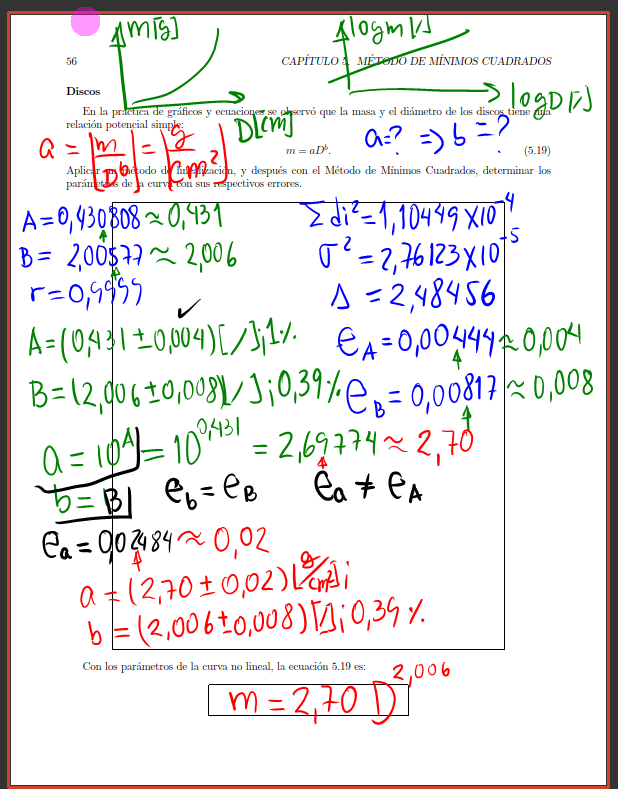 m[g]
logm[/]
56
CAPÍTULO 5. MÉTODO DE MÍNIMOS CUADRADOS
logD[/]
D[cm]
Discos
En la práctica de gráficos y ecuaciones se observó que la masa y el diámetro de los discos tiene una
relación potencial simple:
a = [m/D^b] = [g/cm²]
m = aD^b. (5.19)
a=? => b=?
Aplicar un método de linealización, y después con el Método de Mínimos Cuadrados, determinar los
parámetros de la curva con sus respectivos errores.
A=0,430808≈0,431
Σdi²=1,10449x10^-4
B= 2,00577≈2,006
σ²=2,76123x10^-5
r=0,9999
Δ =2,48456
✓
A=(0,431±0,004)[/];1%
e_A=0,00444≈0,004
B=(2,006±0,008)[/];0,39%
e_B=0,00817≈0,008
a=10^A=10^0,431=2,69774≈2,70
b=B
e_b=e_B
e_a≠e_A
e_a=0,02484≈0,02
a=(2,70±0,02)[g/cm²];
b=(2,006±0,008)[/];0,39%
Con los parámetros de la curva no lineal, la ecuación 5.19 es:
m=2,70 D^2,006